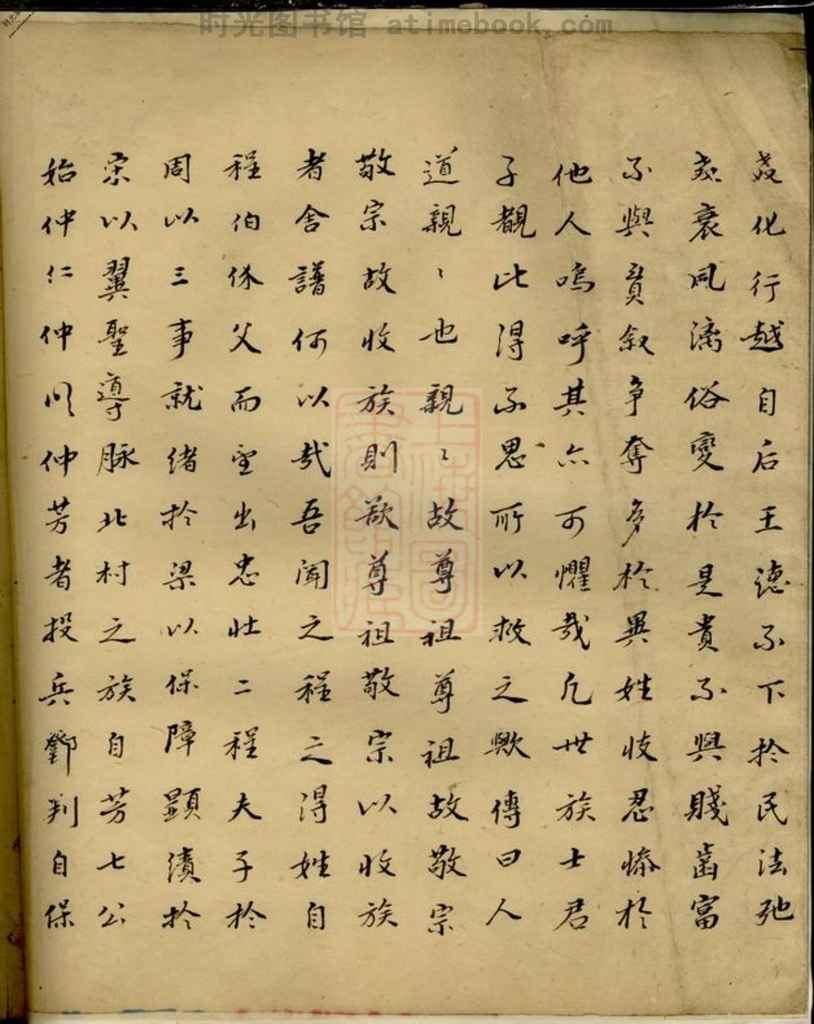 时光图书馆 atimebook.com
化行越自后王德不下於民法弛
衰風漓俗變於是貴不與賤齒富
不與貧叙争奪多於異姓忮忍慘於
他人嗚呼其亦可懼哉凡世族士君
子觀此得不思所以救之歟傳曰人
道親〻也親〻故尊祖尊祖故敬宗
敬宗故收族則欲尊祖敬宗以收族
者舍譜何以哉吾聞之程之得姓自
程伯休父而望出忠壯二程夫子於
周以三事就緒於梁以保障顕績於
宋以翼聖導脉北村之族自芳七公
始仲仁仲仲芳者投兵鄧判自保